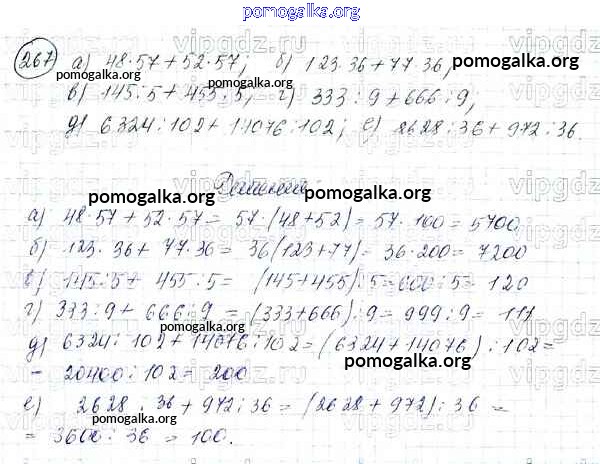 pomogalka.org
267 а) 48·57+52·57; б) 123·36+77·36,
pomogalka.org pomogalka.org
в) 145:5+455:5, г) 333:9+666:9,
д) 6324:102+14076:102; е) 2628:36+972:36.
Решение:
pomogalka.org pomogalka.org
а) 48·57+52·57= 57·(48+52)= 57·100= 5700
б) 123·36+ 77·36= 36(123+77)= 36·200= 7200
в) 145:5+ 455:5= (145+455):5=600:5= 120
pomogalka.org
г) 333:9+ 666:9 = (333+666):9= 999:9= 111
pomogalka.org
д) 6324:102+14076:102=(6324+14076):102=
pomogalka.org
= 20400:102= 200
е) 2628:36+972:36=(2628+972):36=
pomogalka.org
= 3600:36 = 100.
vipgdz.ru